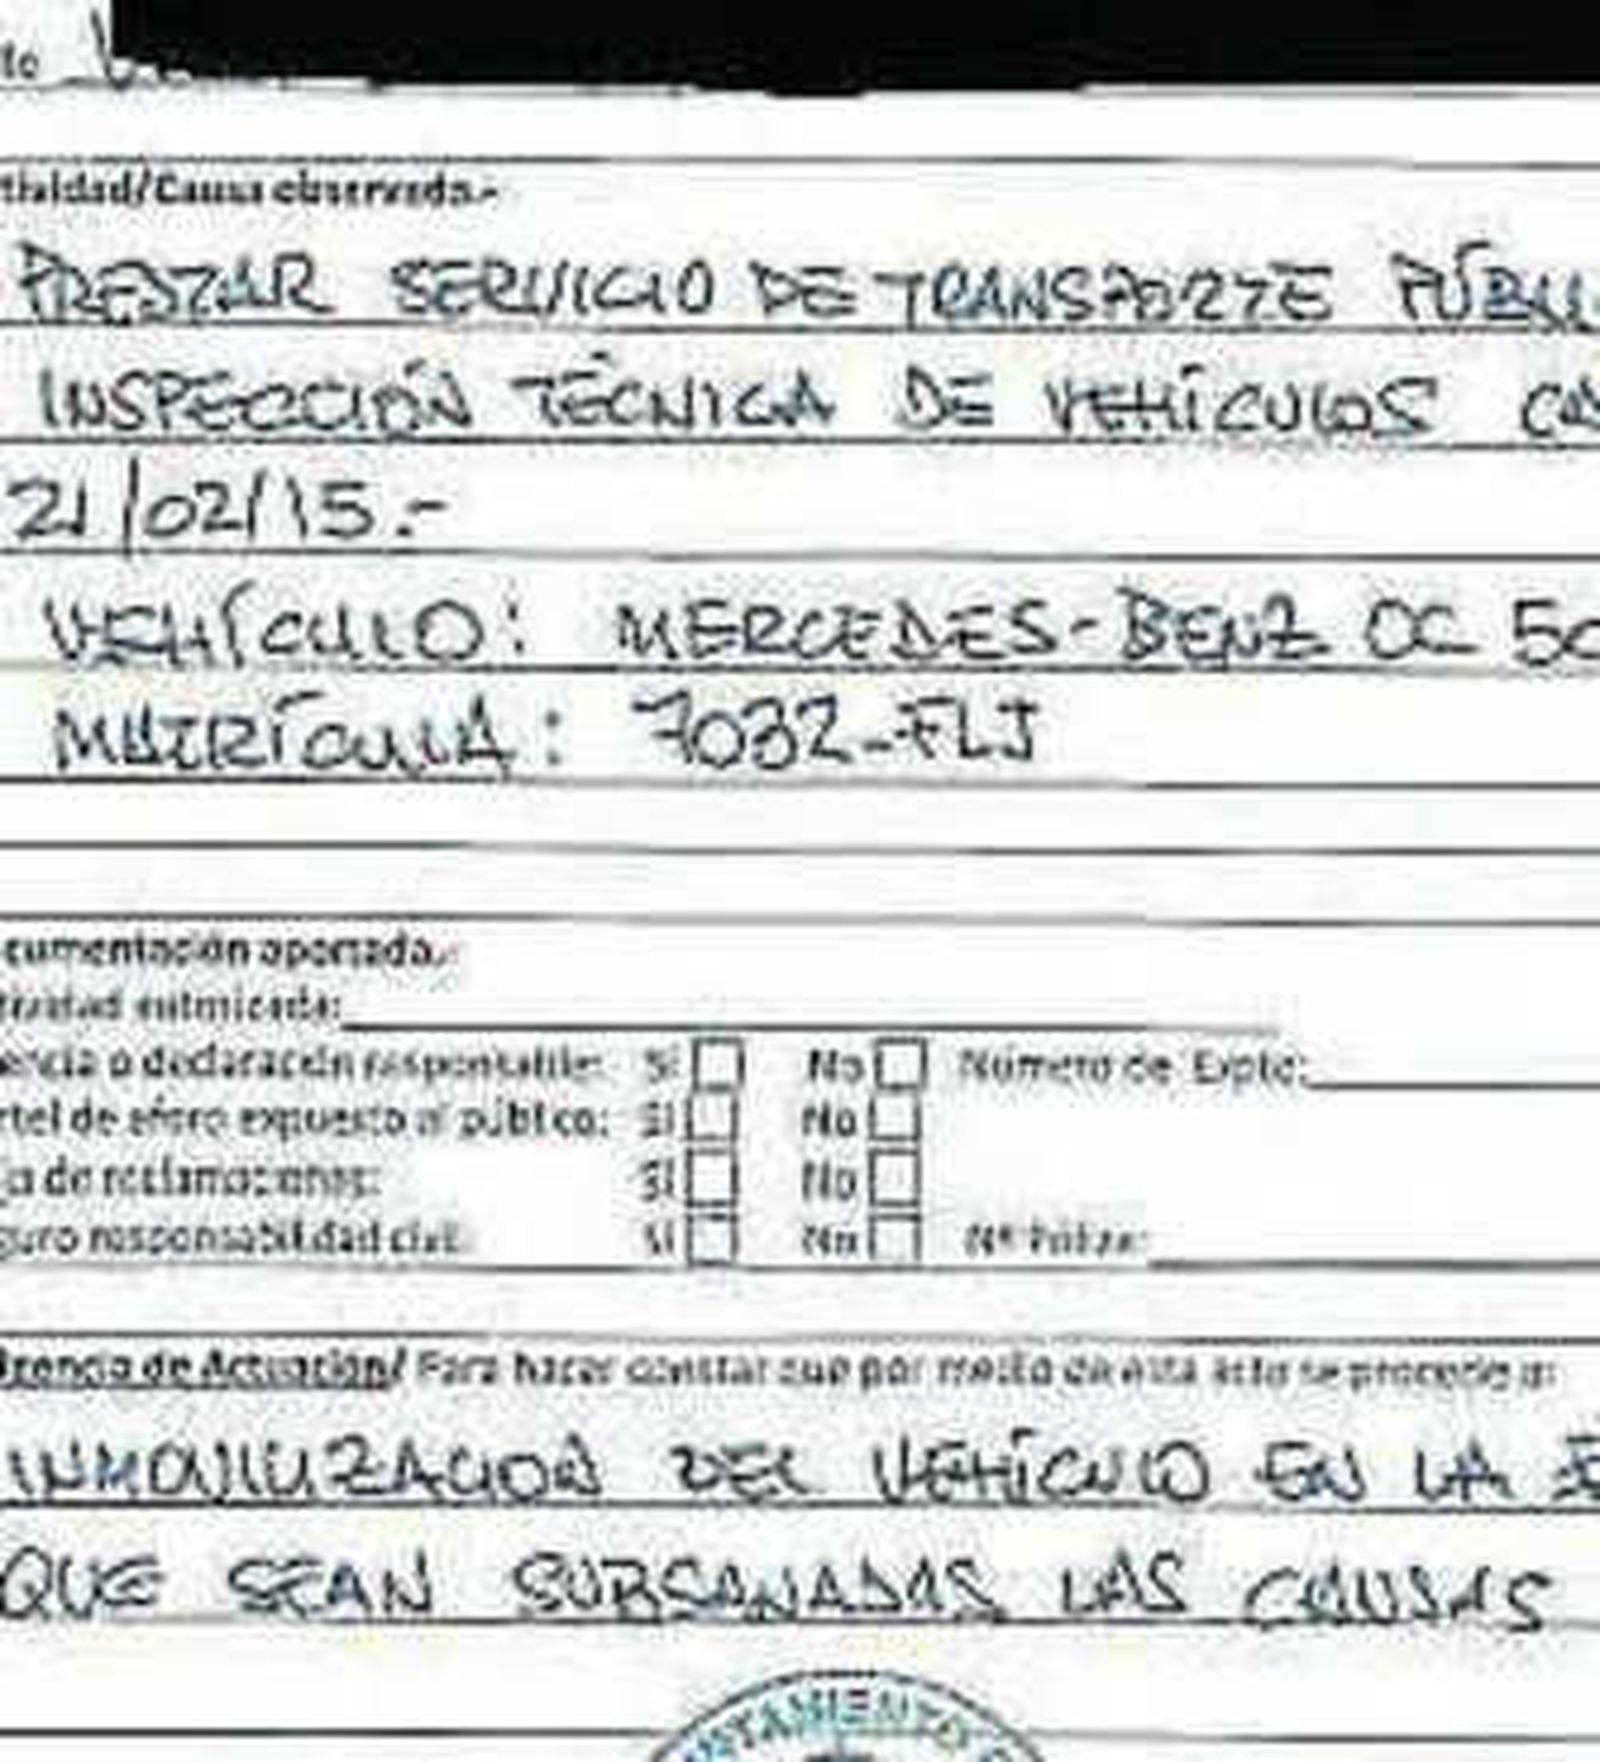 to
tividad/Causa observada.-
PRESTAR SERVICIO DE TRANSPORTE PÚBLI
INSPECCIÓN TÉCNICA DE VEHÍCULOS CA
21/02/15.-
VEHÍCULO: MERCEDES-BENZ OC 50
MATRÍCULA: 7032-FLJ
cumentación aportada.-
tividad autorizada:
encia o declaración responsable: Sí No Número de Expte:
rtel de aforo expuesto al público: Sí No
ja de reclamaciones: Sí No
guro responsabilidad civil: Sí No Nº Póliza:
igencia de Actuación/ Para hacer constar que por medio de esta acto se procede a:
INMOVILIZACIÓN DEL VEHÍCULO EN LA
QUE SEAN SUBSANADAS LAS CAUSAS
UNTAMIENTO